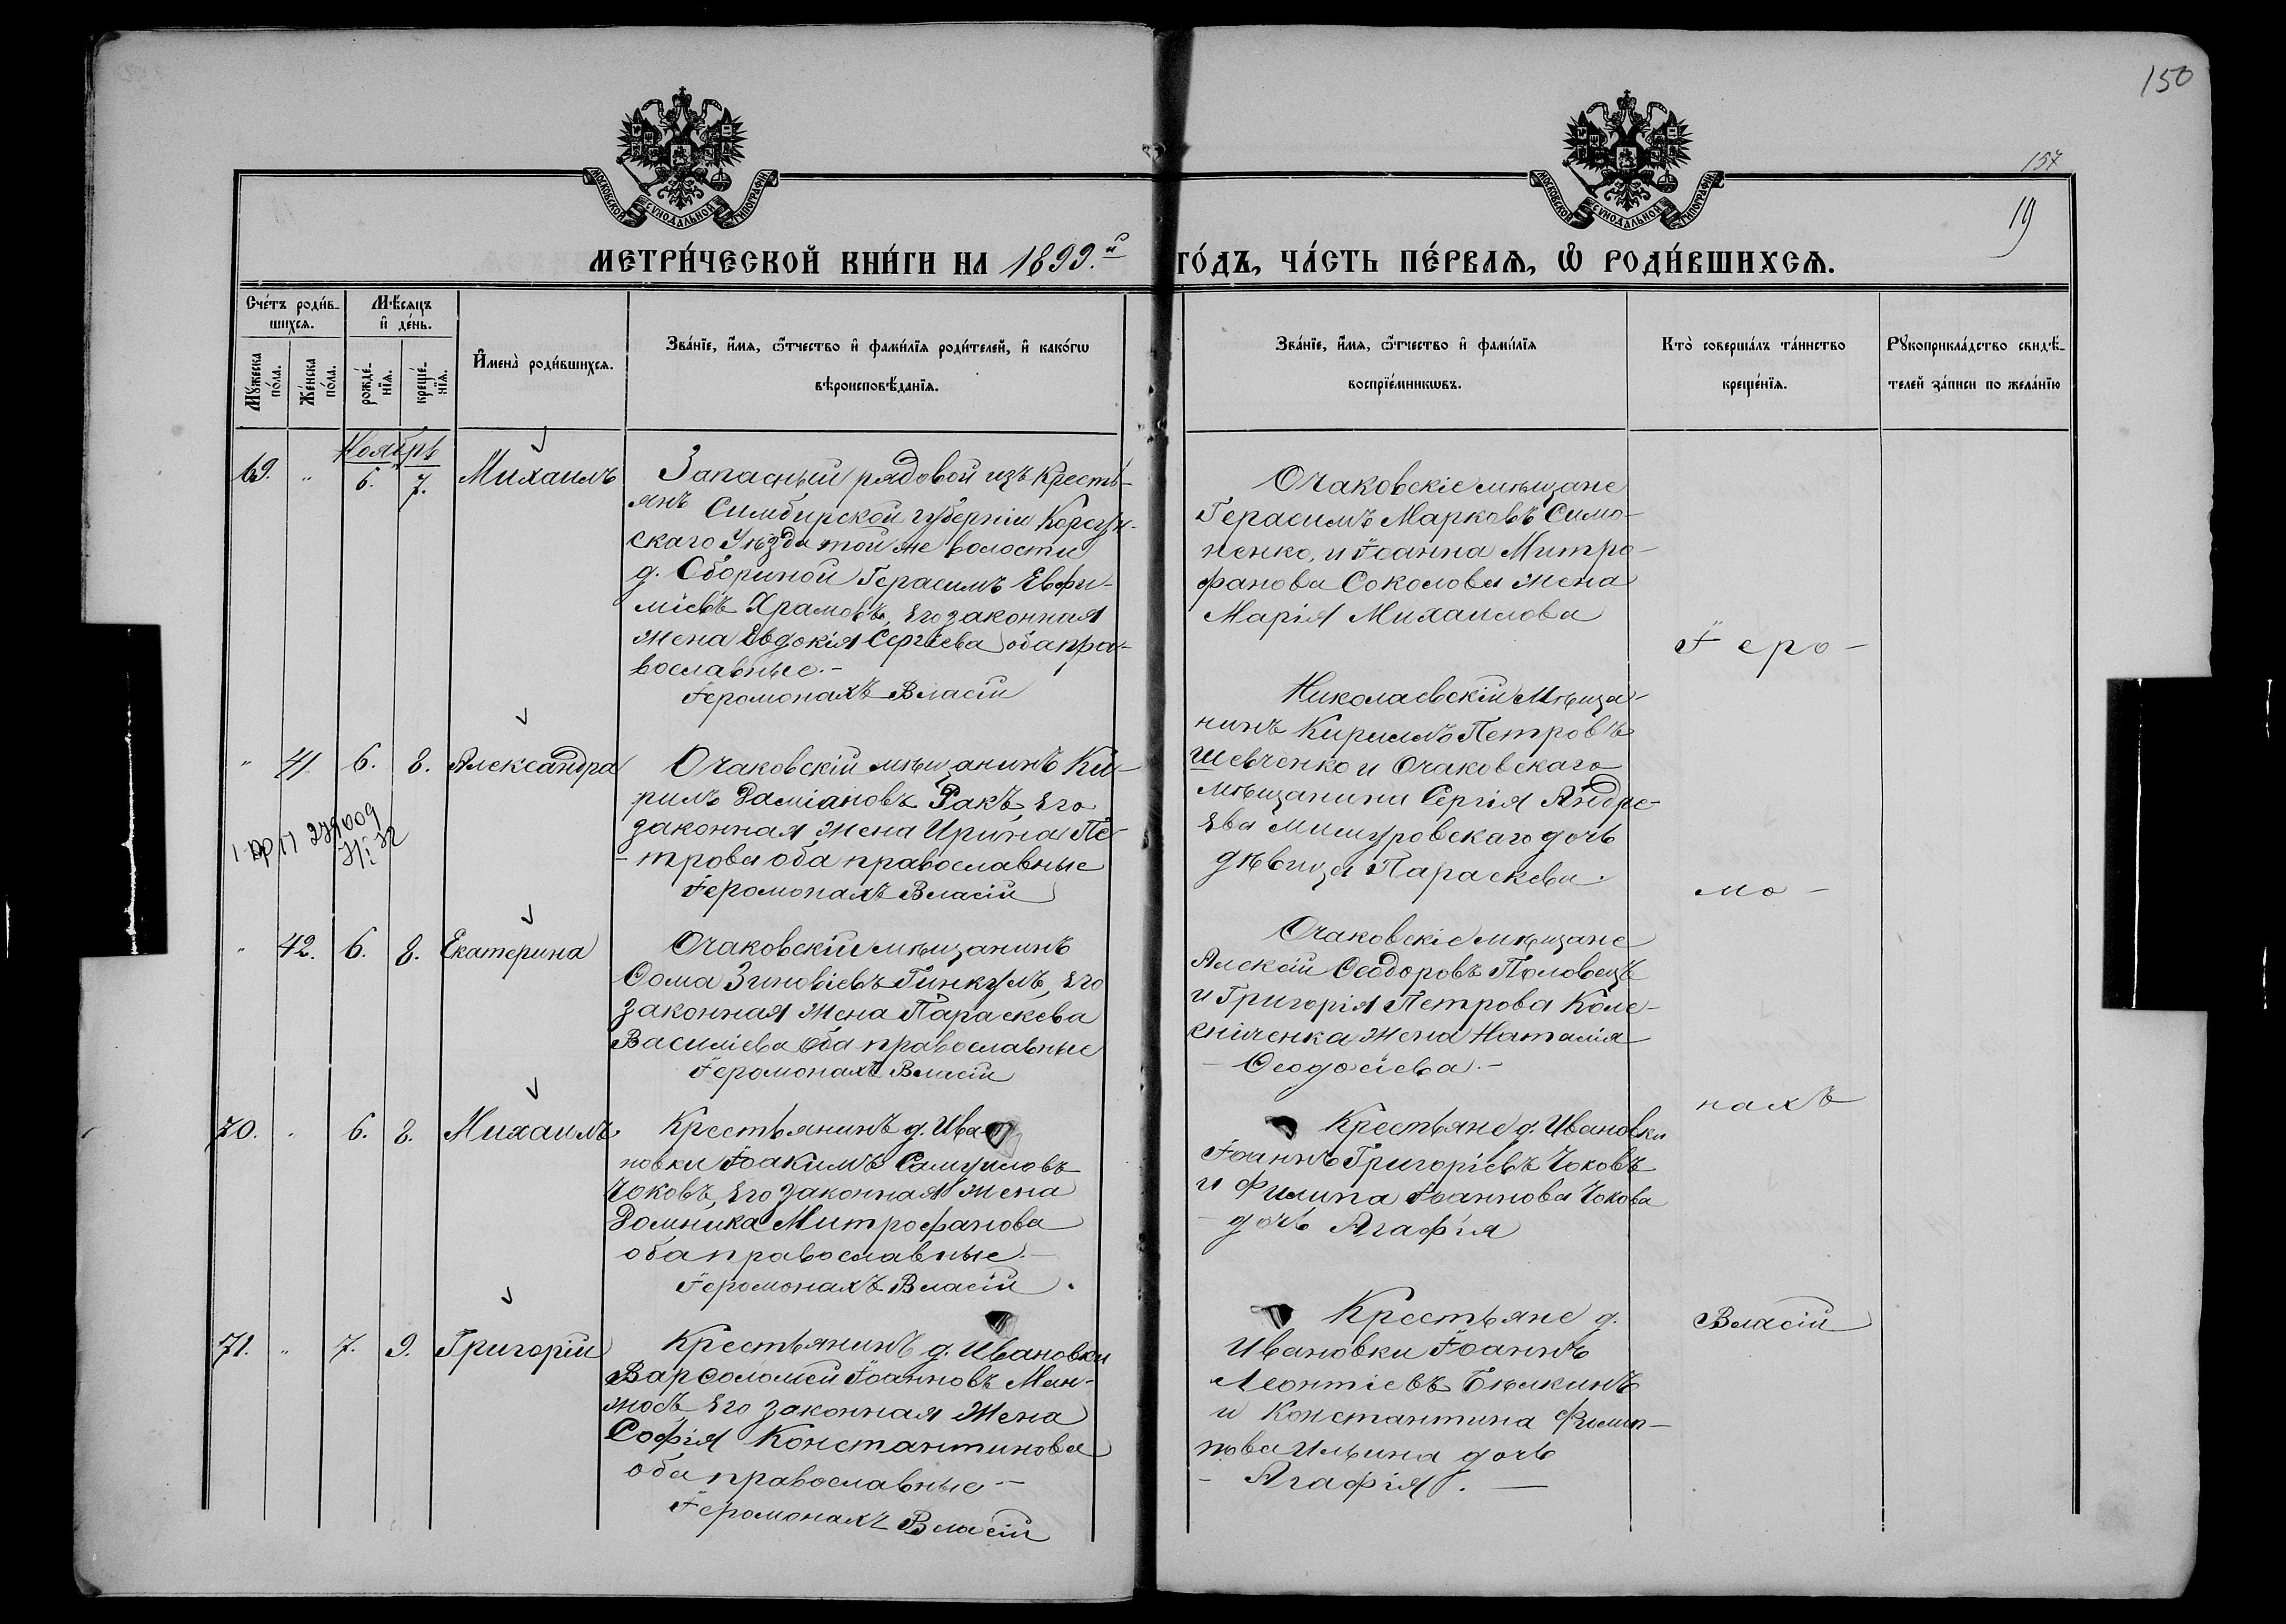 150
157
19
МОСКОВСКОЙ СУНОДАЛЬНОЙ ТИПОГРАФІИ
МОСКОВСКОЙ СУНОДАЛЬНОЙ ТИПОГРАФІИ
МЕТРИ́ЧЕСКОЙ КНИ́ГИ НА 1899.й ГО́ДЪ, ЧА́СТЬ ПЕ́РВАѦ, Ѽ РОДИ́ВШИХСѦ.
Сче́тъ роди́в-
шихсѧ.
Мѣ́сѧцъ
и҆ де́нь.
Мꙋ́жеска
по́ла.
Же́нска
по́ла.
рожде́-
нїѧ.
креще́-
нїѧ.
И҆мена̀ роди́вшихсѧ.
Зва́нїе, и҆́мѧ, ѻ҆́тчество и҆ фами́лїѧ роди́телей, и҆ како́гѡ
вѣроисповѣ́данїѧ.
Зва́нїе, и҆́мѧ, ѻ҆́тчество и҆ фами́лїѧ
воспрїе́мникѡвъ.
Кто̀ соверша́лъ та́инство
креще́нїѧ.
Рꙋкоприкла́дство свидѣ́-
телей за́писи по жела́нїю
Ноябрь
69. " 6. 7. Михаилъ
Запасный рядовой изъ кресть-
янъ Симбирской губерніи Корсун-
скаго уѣзда той же волости
д. Сбориной Герасимъ Евфи-
міевъ Храмовъ, его законная
жена Евдокія Сергіева оба пра-
вославные.-
Іеромонахъ Власій
Очаковскіе мѣщане
Герасимъ Марковъ Симо-
ненко, и Іоанна Митро-
фанова Соколова жена
Марія Михаилова
Іеро-
" 41. 6. 8. Александра
Очаковскій мѣщанинъ Ки-
рилъ Даміановъ Ракъ, его
законная жена Ирина Пе-
- трова оба православные
Іеромонахъ Власій
Николаевскій мѣща-
нинъ Кириллъ Петровъ
Шевченко и Очаковскаго
мѣщанина Сергія Андре-
ева Мишуровскаго дочь
дѣвица Параскева.
мо-
" 42. 6. 8. Екатерина
Очаковскій мѣщанинъ
Ѳома Зиновіевъ Гинкулъ, его
законная жена Параскева
Василіева оба православные
Іеромонахъ Власій
Очаковскіе мѣщане
Алексій Ѳеодоровъ Половецъ
и Григорія Петрова Коле-
сниченка жена Наталія
- Ѳеодосіева.-
нахъ
70. " 6. 8. Михаилъ
Крестьянинъ д. Ива-
новки Іоакимъ Самуиловъ
Чоковъ, его законная жена
Домника Митрофанова
оба православные.-
Іеромонахъ Власій.
Крестьяне д. Ивановки
Іоаннъ Григоріевъ Чоковъ
и Филипа Іоаннова Чокова
- дочь Агафія
Власій
71. " 7. 9. Григорій
Крестьянинъ д. Ивановки
Варѳоломей Іоанновъ Ман-
жосъ его законная жена
Софія Константинова
оба православные-
Іеромонахъ Власій
Крестьяне д.
Ивановки Іоаннъ
Леонтіевъ Бѣлкинъ
и Константина Филип-
пова Ильина дочь
- Агафія. —